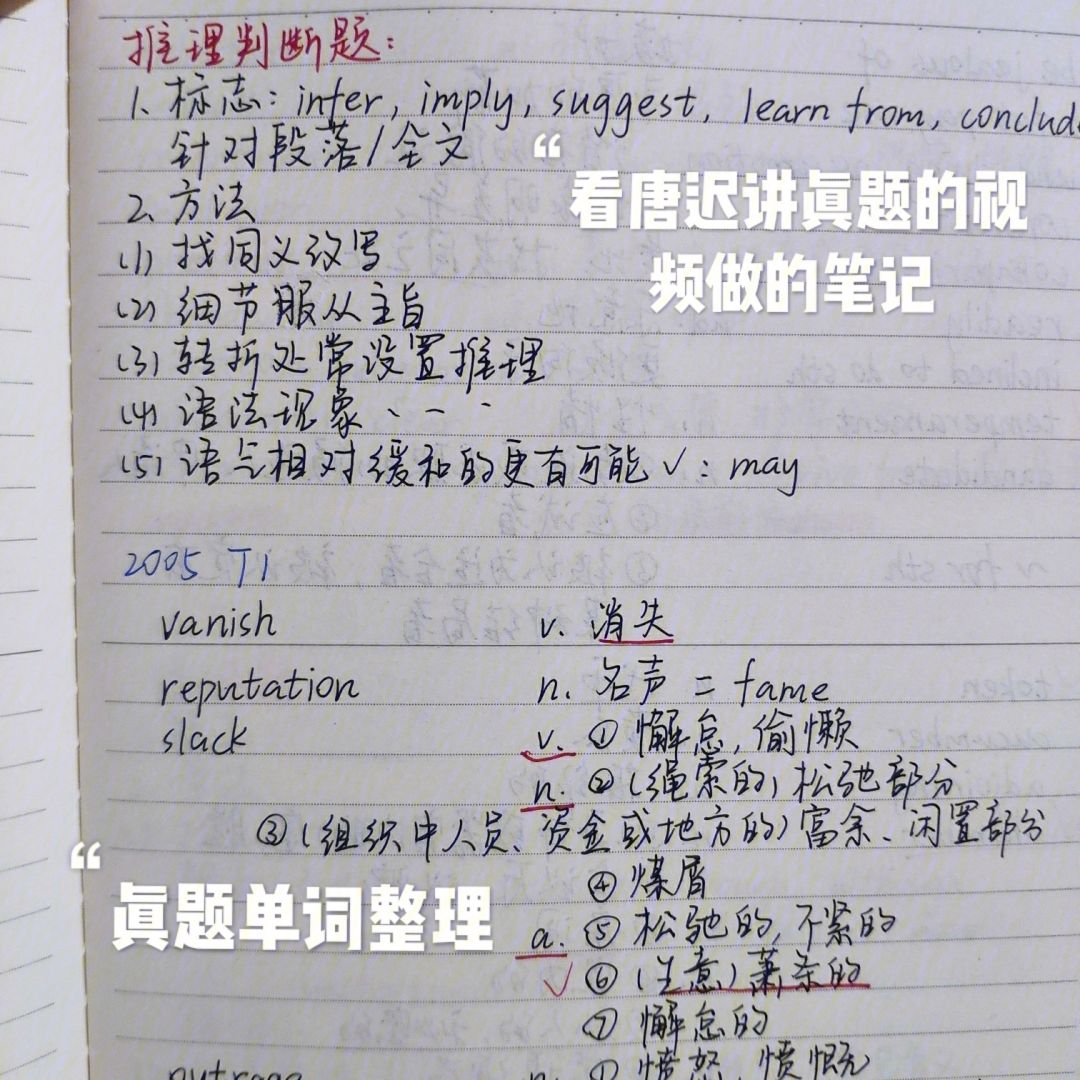 推理判断题:
1. 标志: infer, imply, suggest, learn from, conclud
针对段落/全文
“
看唐迟讲真题的视
频做的笔记
2. 方法
(1) 找同义改写
(2) 细节服从主旨
(3) 转折处常设置推理
(4) 语法现象 、一 、
(5) 语气相对缓和的更有可能√: may
2005 T1
vanish v. 消失
reputation n. 名声 = fame
slack v. ① 懈怠, 偷懒
n. ② (绳索的) 松弛部分
③ (组织中人员、资金或地方的) 富余、闲置部分
“
真题单词整理
④ 煤屑
a. ⑤ 松弛的, 不紧的
√ ⑥ (生意) 萧条的
⑦ 懈怠的
outrage n. ① 愤怒, 愤慨